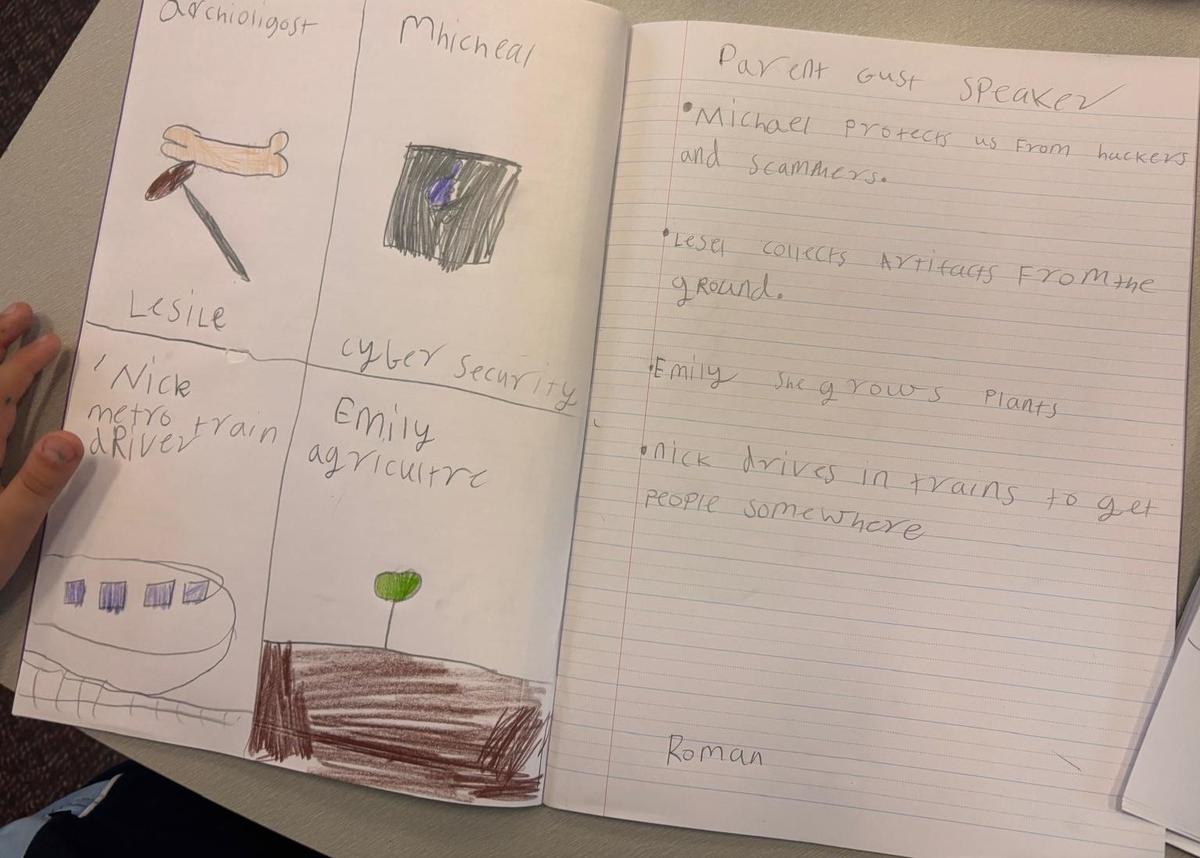 archioligost
Lesile
Mhicheal
cyber security
Nick
metro train
dRiver
Emily
agricultrc
Parent Gust speaker
•Michael protects us from hackers
and scammers.
•Lesel collects Artifacts From the
gRound.
•Emily she grows plants
•nick drives in trains to get
people somewhere
Roman